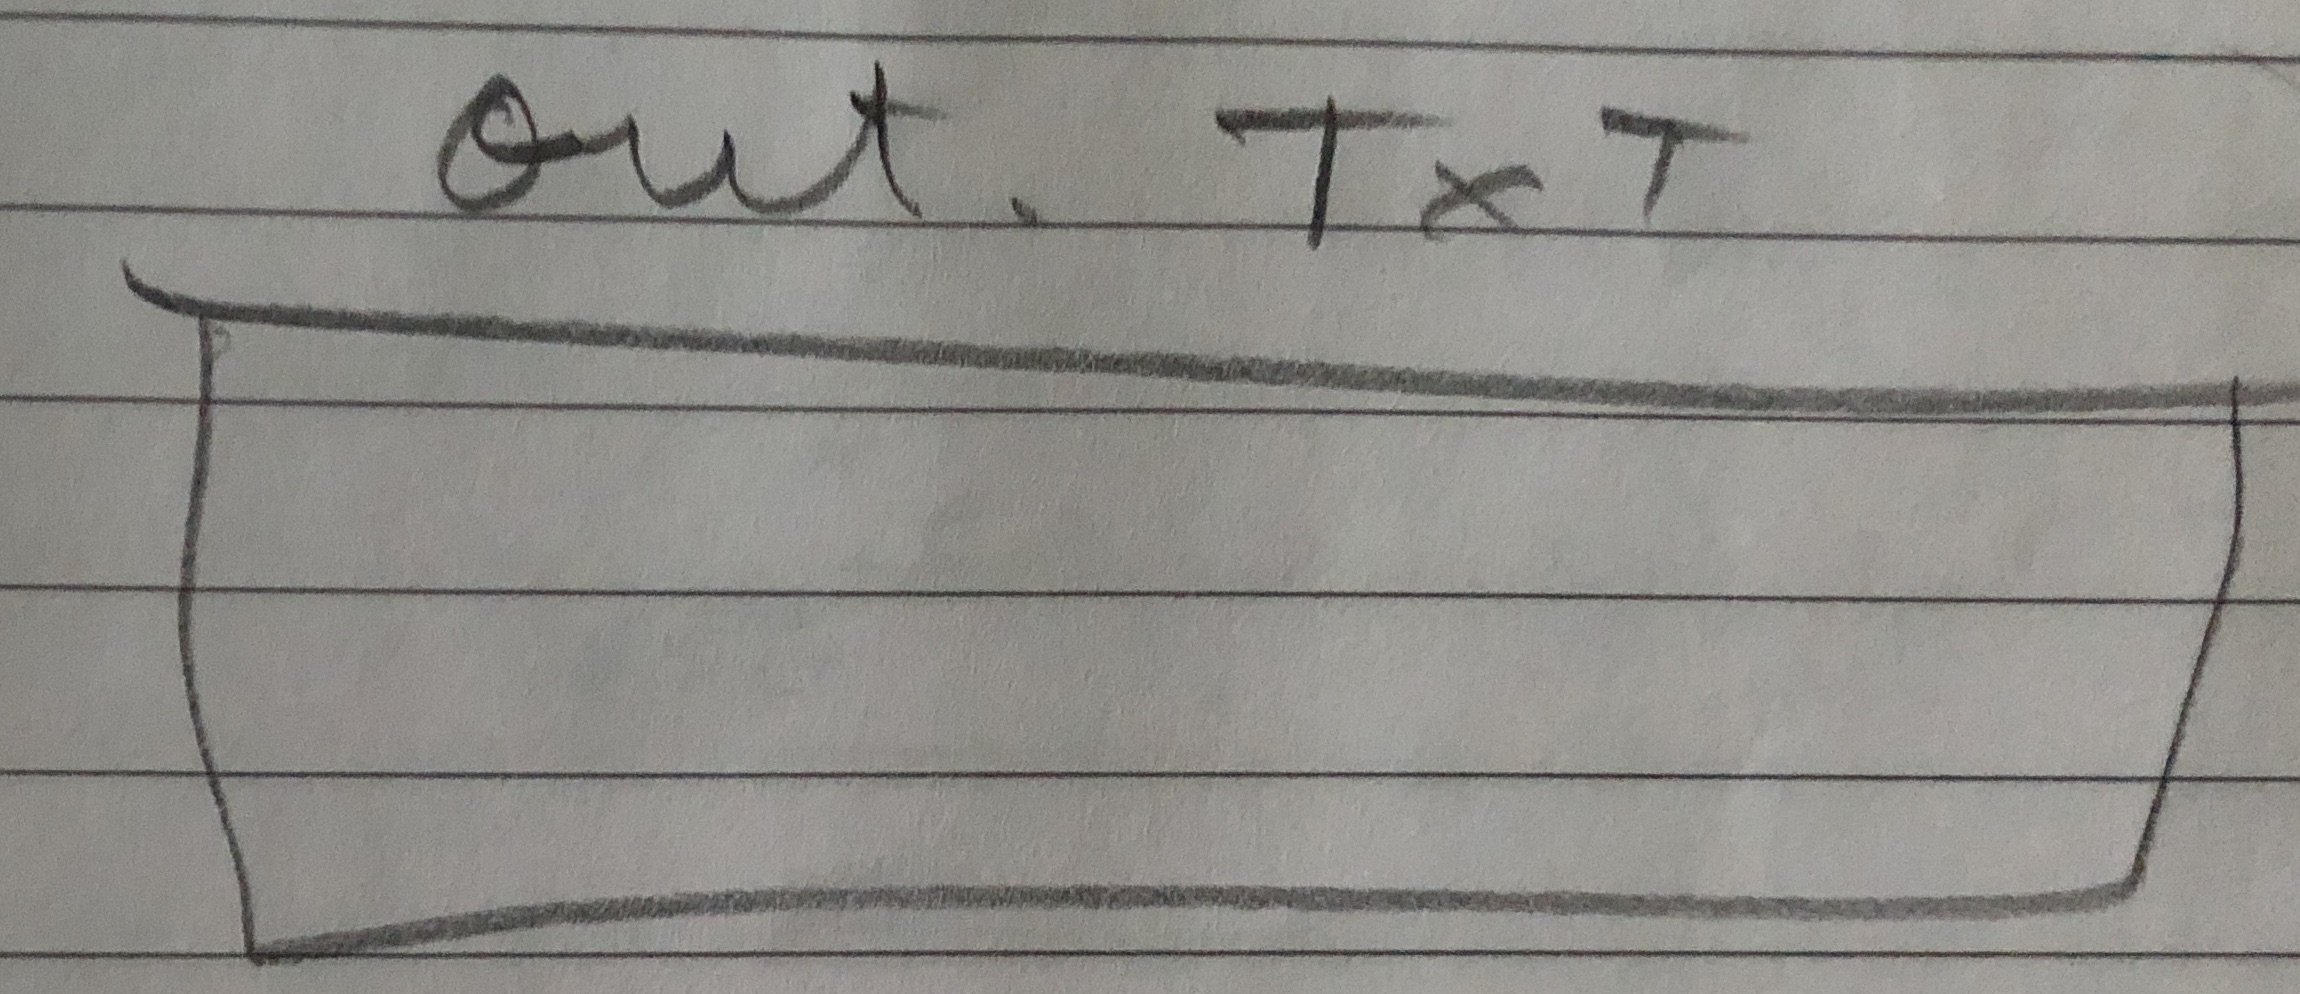 out. TxT